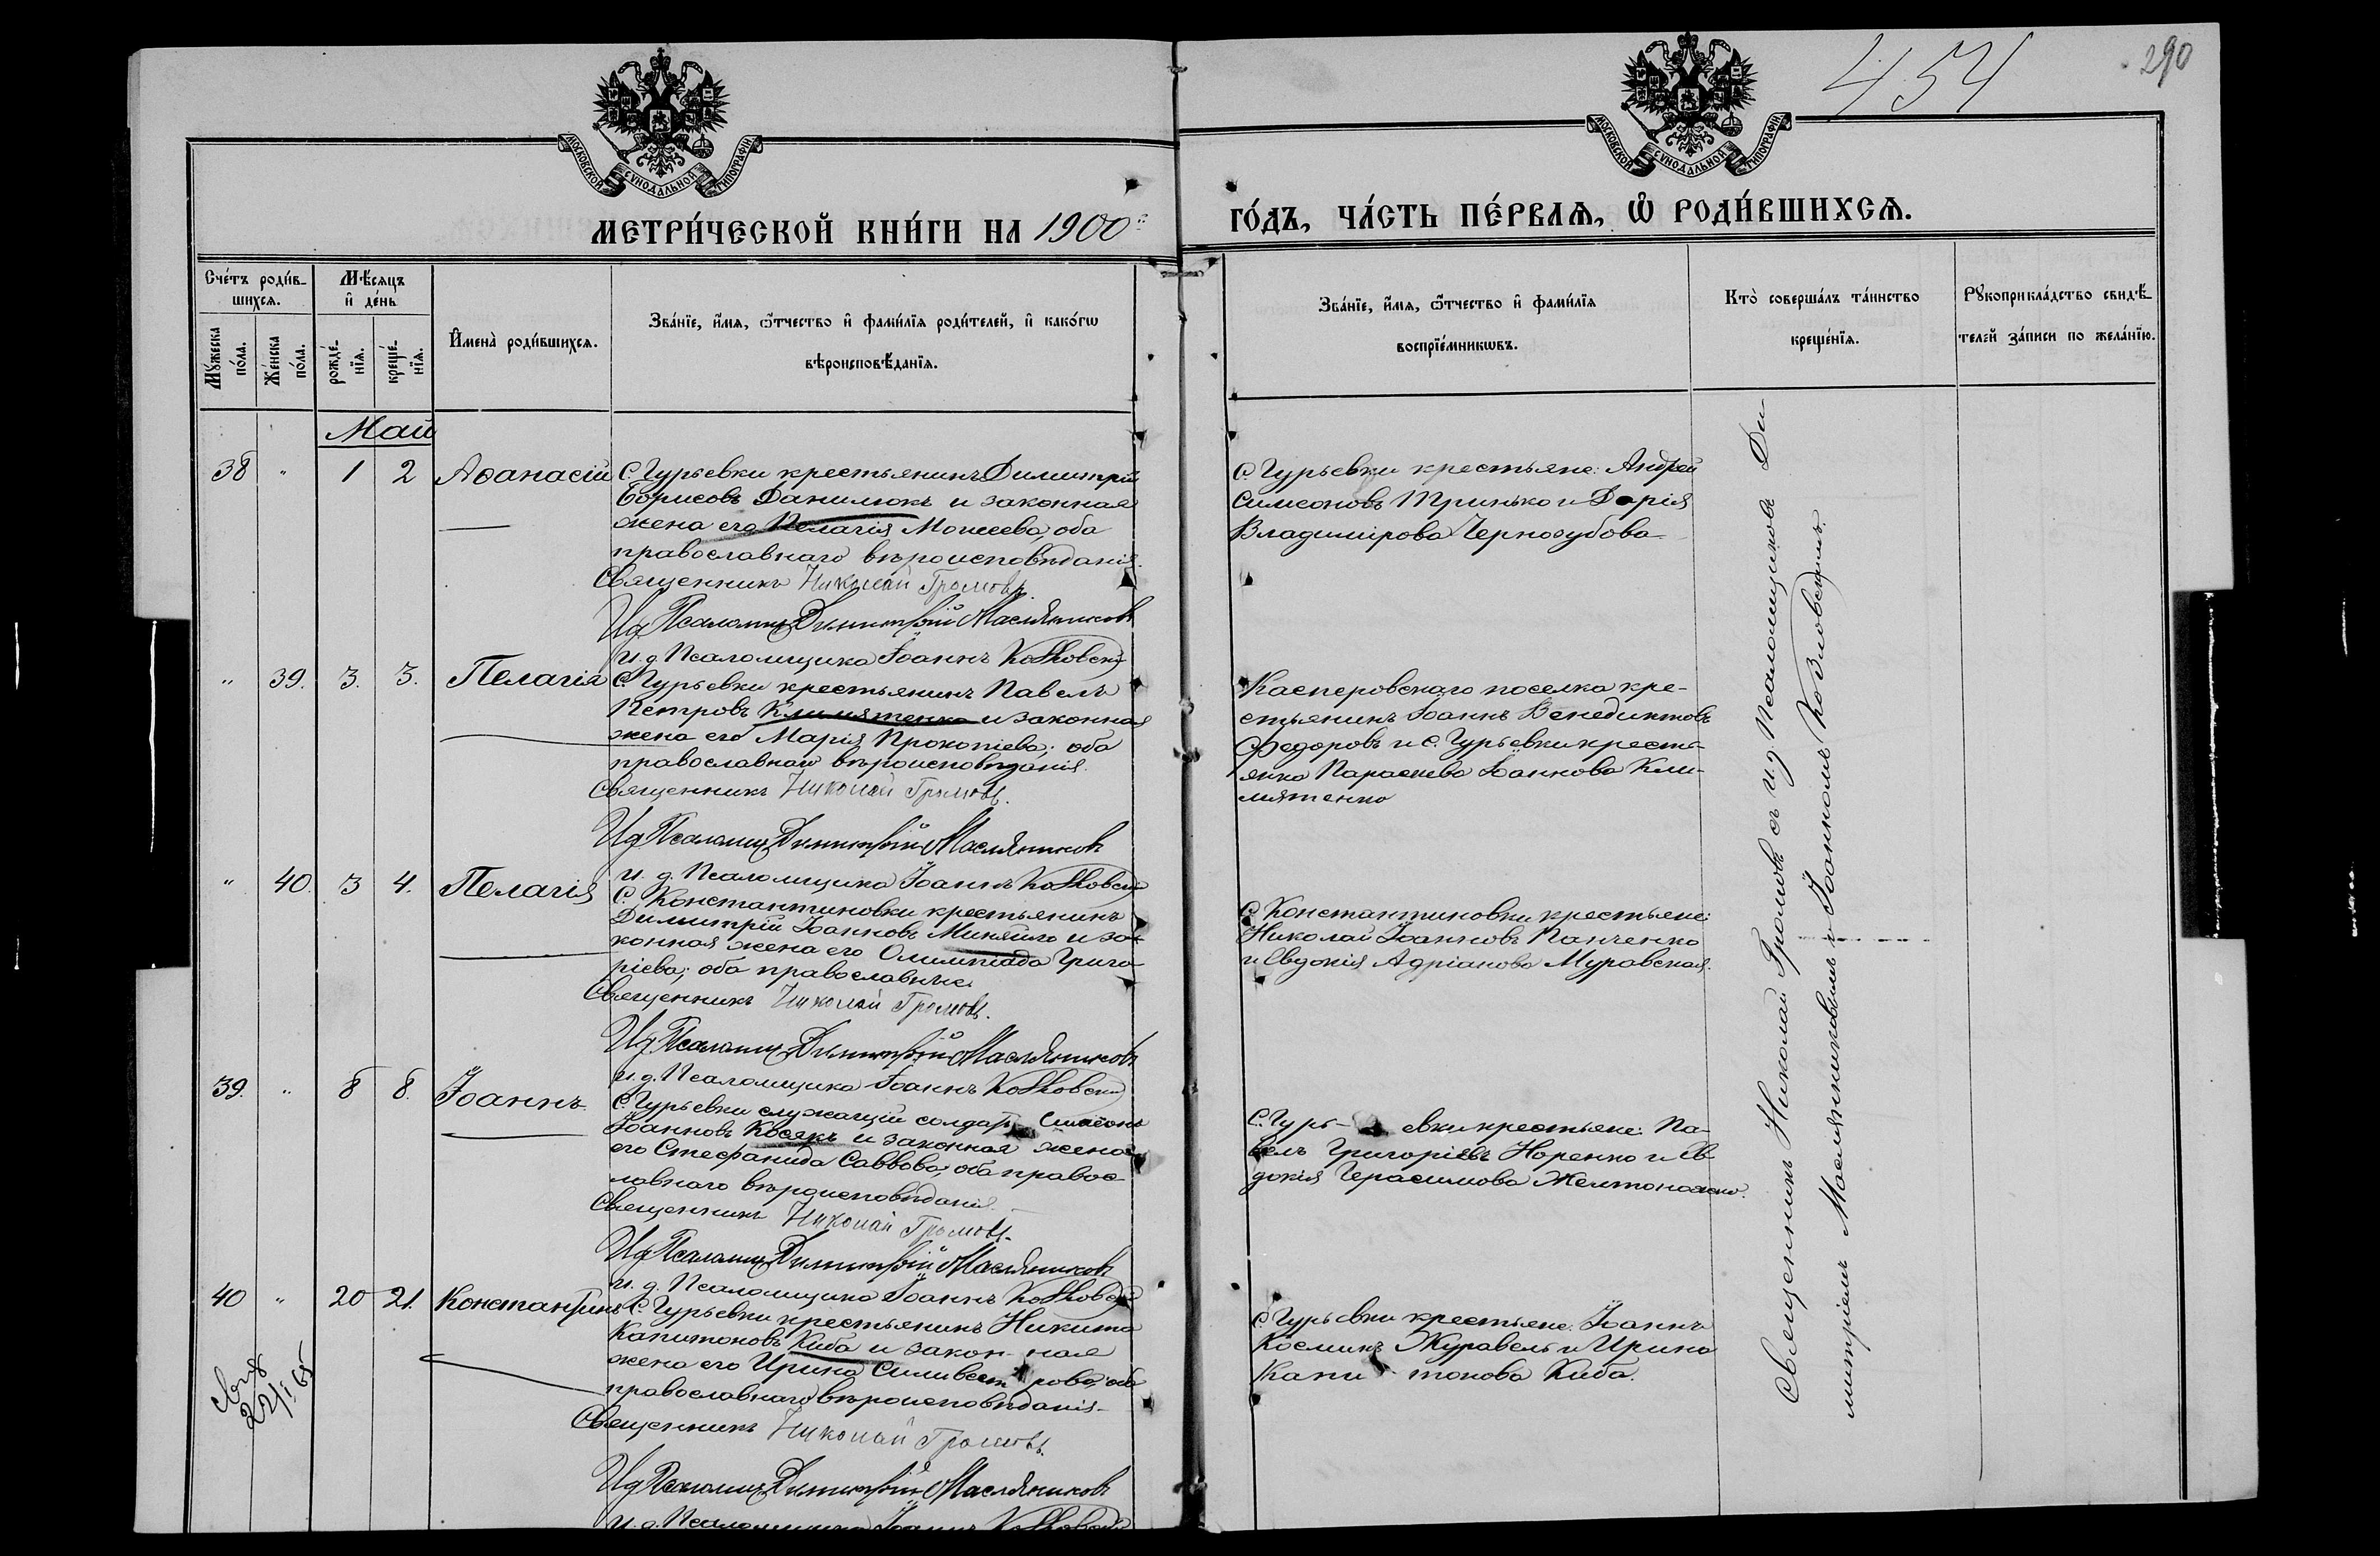 454
290
МОСКОВСКОЙ СУНОДАЛЬНОЙ ТИПОГРАФІИ
МОСКОВСКОЙ СУНОДАЛЬНОЙ ТИПОГРАФІИ
МЕТРИ́ЧЕСКОЙ КНИ́ГИ НА 1900й
ГО́ДЪ, ЧА́СТЬ ПЕ́РВАѦ, Ѽ РОДИ́ВШИХСѦ.
Сче́тъ роди́в-
шихсѧ.
Мꙋ́жеска
по́ла.
Же́нска
по́ла.
Мѣ́сѧцъ
и҆ де́нь
рожде́-
нїѧ.
креще́-
нїѧ.
И҆мена̀ роди́вшихсѧ.
Зва́нїе, и҆́мѧ, ѻ҆́тчество и҆ фами́лїѧ роди́телей, и҆ како́гѡ
вѣроисповѣ́данїѧ.
Зва́нїе, и҆́мѧ, ѻ҆́тчество и҆ фами́лїѧ
воспрїе́мникѡвъ.
Кто̀ соверша́лъ та́инство
креще́нїѧ.
Рꙋкоприкла́дство свидѣ́-
телей за́писи по жела́нїю.
Май
38 " 1 2 Аѳанасій
С. Гурьевки крестьянинъ Димитрій
Борисовъ Данилюкъ и законная
жена его Пелагія Моисеева; оба
православнаго вѣроисповѣданія.
Священникъ Николай Громовъ.
И д Псаломщ. Димитрій Масляниковъ
И. д. Псаломщика Іоаннъ Козловскій
С. Гурьевки крестьяне: Андрей
Симеоновъ Тринько и Дарія
Владимірова Черногубова
" 39. 3. 3. Пелагія
С. Гурьевки крестьянинъ Павелъ
Петровъ Климятенко и законная
жена его Марія Прокопіева; оба
православнаго вѣроисповѣданія.
Священникъ Николай Громовъ.
И д Псаломщ. Димитрій Масляниковъ
И. д. Псаломщика Іоаннъ Козловскій
Касперовскаго поселка кре-
стьянинъ Іоаннъ Венедиктовъ
Федоровъ и С. Гурьевки кресть-
янка Параскева Іоаннова Кли-
мятенко
" 40. 3 4. Пелагія
С. Константиновки крестьянинъ
Димитрій Іоанновъ Миняйло и за-
конная жена его Олимпіада Григо-
ріева; оба православные.
Священникъ Николай Громовъ.
И д Псаломщ. Димитрій Масляниковъ
И. д. Псаломщика Іоаннъ Козловскій
С. Константиновки крестьяне:
Николай Іоанновъ Панченко
и Евдокія Адріанова Муравская.
39. " 8 8. Іоаннъ
С. Гурьевки служащій солдатъ Симеонъ
Іоанновъ Косякъ и законная жена
его Стефанида Саввова; оба правос-
лавнаго вѣроисповѣданія.
Священникъ Николай Громовъ.
И д Псаломщ. Димитрій Масляниковъ
И. д. Псаломщика Іоаннъ Козловскій
С. Гурь- евки крестьяне: Па-
велъ Григоріевъ Норенко и Ев-
докія Герасимова Желтоножко.
40 " 20 21. Константинъ
С. Гурьевки крестьянинъ Никита
Капитоновъ Киба и закон- ная
жена его Ирина Силивест рова; оба
православнаго вѣроисповѣданія.
Священникъ Николай Громовъ.
И д Псаломщ. Димитрій Масляниковъ
И. д. Псаломщика Іоаннъ Козловскій
С. Гурьевки крестьяне: Іоаннъ
Косминъ Журавель и Ирина
Капи- тонова Киба.
Священникъ Николай Громовъ съ и. д Псаломщиковъ Ди-
митріемъ Маслянниковымъ и Іоанномъ Козловскимъ.